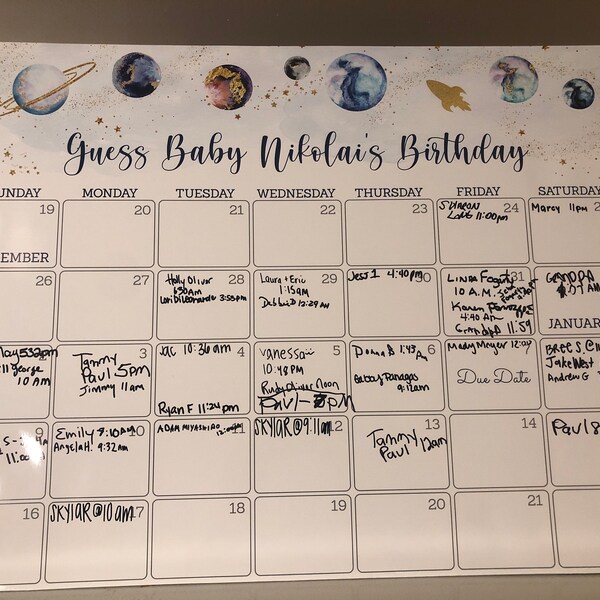 Guess Baby Nikolai's Birthday
UNDAY MONDAY TUESDAY WEDNESDAY THURSDAY FRIDAY SATURDAY
19 20 21 22 23 24 2
EMBER
SHARON
LONG 11:00pm
Marcy 11pm
26 27 28 29 30 31
Holly Oliver
630am
Lori DiLeonardo 3:55pm
Laura + Eric
1:15am
Debbie D 12:29 AM
Jess 1 4:40pm
LINDA Fogarty
10 A.M.
Karen
4:40 AM
Grandpa 11:59
GRANDPA
JANUAR
3 4 5 6
May 532pm
George
10 AM
Tammy
Paul 5pm
Jimmy 11am
Jac 10:36am
Ryan F 11:24pm
vanessa
10:48PM
Rudy Oliver Noon
Paul - 8pm
Donna B 1:43AM
Babby Panagos
9:12am
Mady Moyer 12:00p
Due Date
BREE S. @ 11
Jake West
Andrew G
9 10 11 12 13 14
11:00
Emily 7:10AM
Angela H. 9:32AM
ADAM MIYASHIRO 12:00pm
SKYLAR@9:11am
Tammy
Paul 12am
Paul 8
16 17 18 19 20 21
SKYLAR@10am